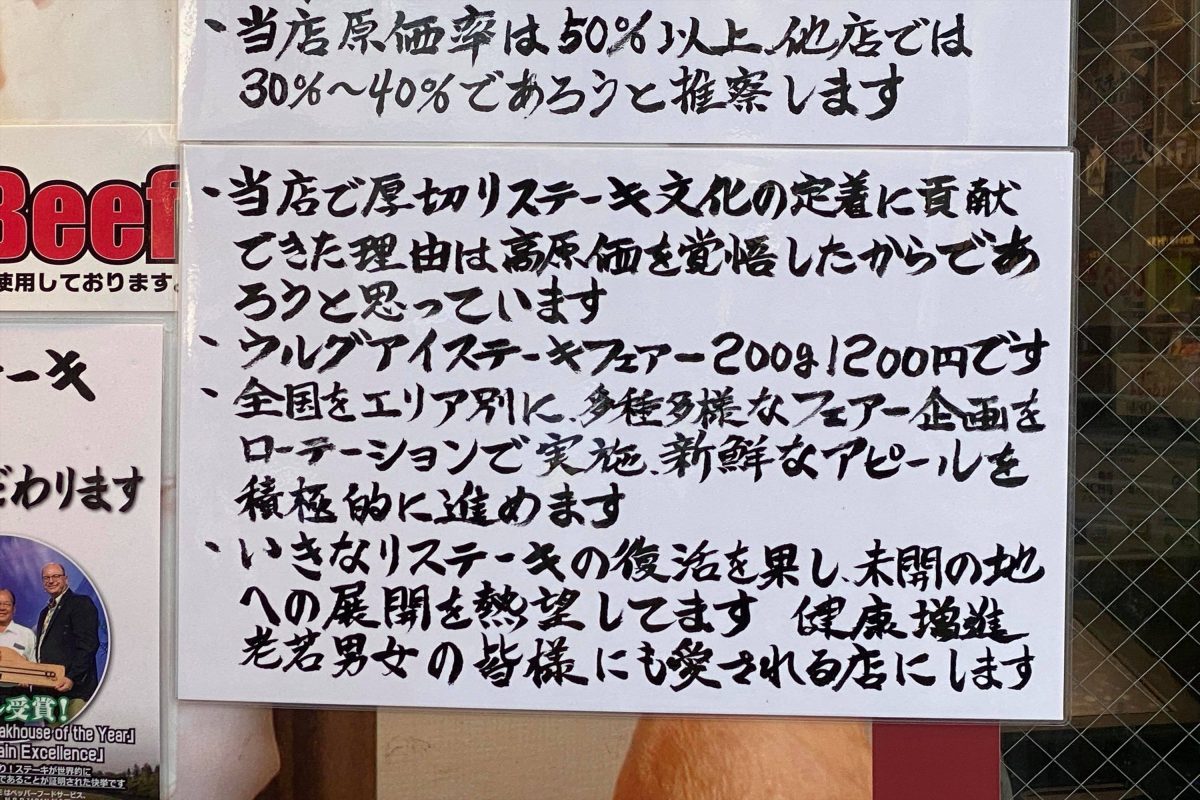 ・当店原価率は50％以上、他店では
30％〜40％であろうと推察します
・当店で厚切りステーキ文化の定着に貢献
できた理由は高原価を覚悟したからであ
ろうと思っています
・ウルグアイステーキフェアー200g1200円です
・全国をエリア別に、多種多様なフェアー企画を
ローテーションで実施、新鮮なアピールを
積極的に進めます
・いきなりステーキの復活を果し、未開の地
への展開を熱望してます 健康増進
老若男女の皆様にも愛される店にします
Beef
使用しております。
ーキ
だわります
受賞！
akhouse of the Year」
ain Excellence」
り！ステーキが世界的に
であることが証明された快挙です
はペッパーフードサービス